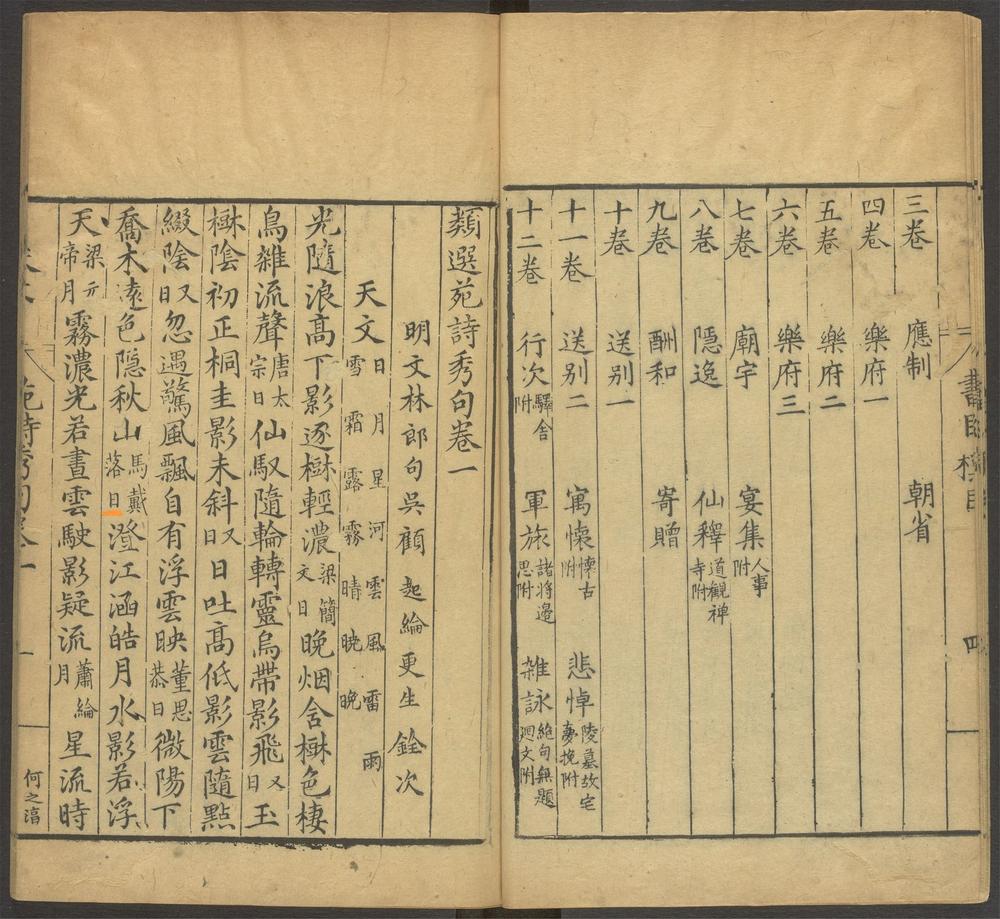 三卷 應制 朝省
四卷 樂府一
五卷 樂府二
六卷 樂府三
七卷 廟宇 宴集人事附
八卷 隱逸 仙釋道觀禅寺附
九卷 酬和 寄贈
十卷 送别一
十一卷 送别二 寓懷懐古附 悲悼陵墓故宅夢挽附
十二卷 行次驛舎附 軍旅諸將邉思附 雑詠絶句無題廻文附
四
類選苑詩秀句卷一
明文林郎句呉顧起綸更生銓次
天文日月星河雲風雷雨雪霜露霧晴暁晩
光隨浪髙下影逐樹輕濃梁簡文日晩烟含樹色棲
鳥雜流聲唐太宗日仙馭隨輪轉靈烏帶影飛又日玉
樹陰初正桐圭影未斜又日日吐髙低影雲隨點
綴陰又日忽遇驚風飄自有浮雲映董思恭日微陽下
喬木遠色隠秋山馬戴落日澄江涵皓月水影若浮
天梁元帝月霧濃光若晝雲駛影疑流蕭綸月星流時
苑詩秀句卷一
一
何之